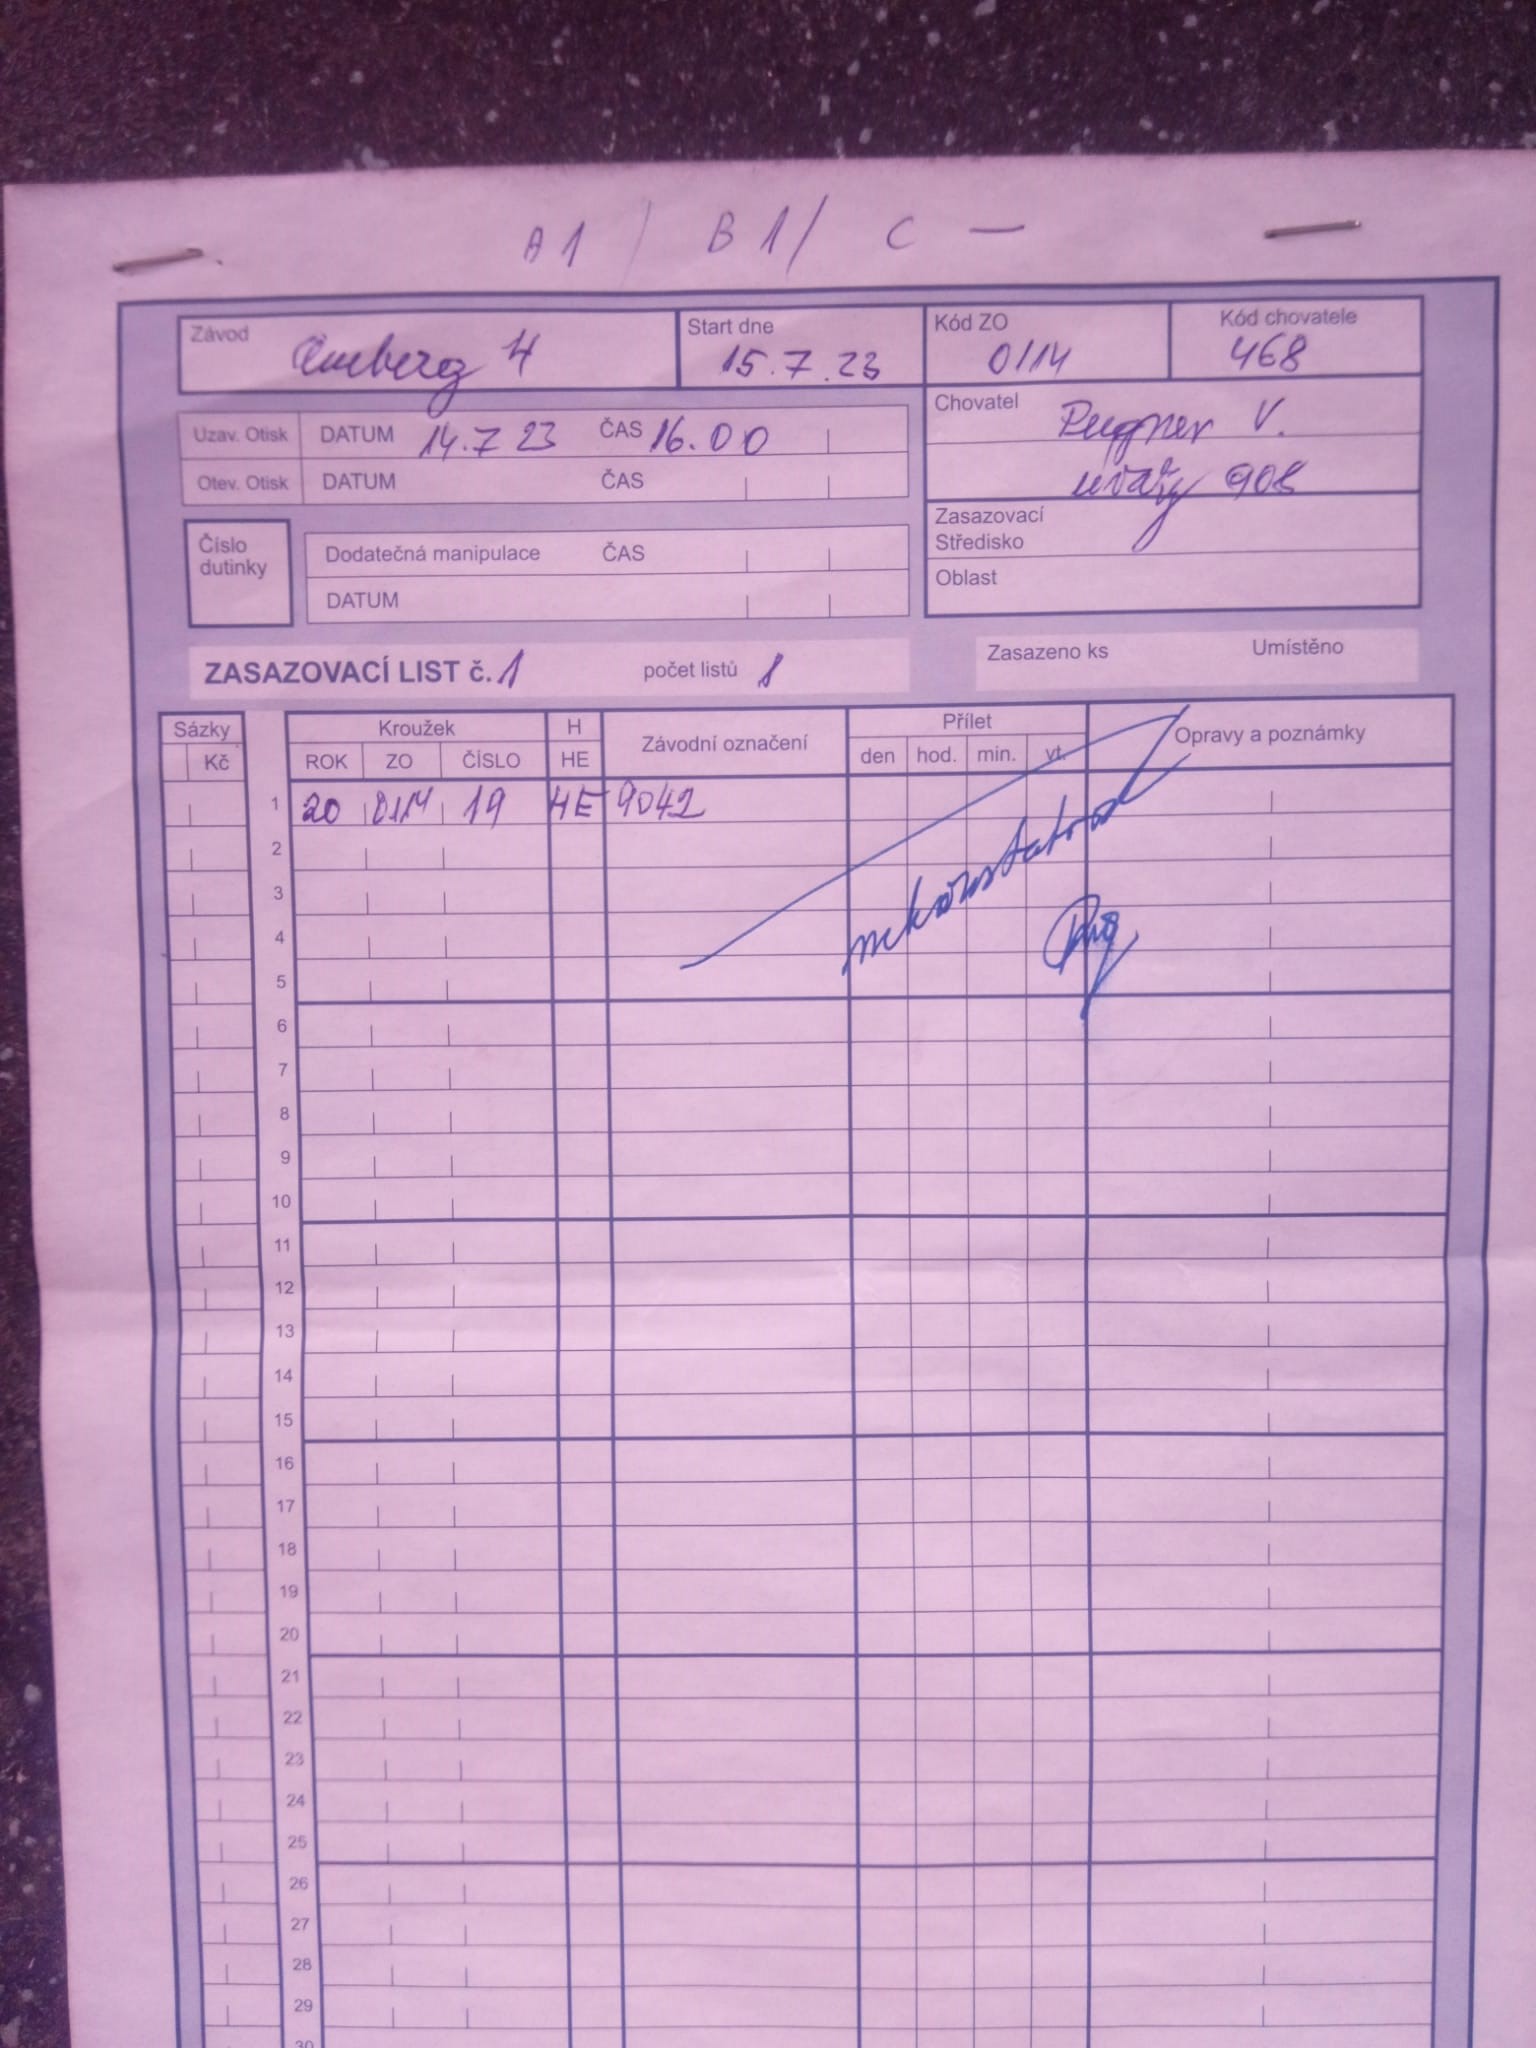 A1 / B1 / C —
Závod
Start dne
Kód ZO
Kód chovatele
Amberg H
15.7.23
0114
468
Uzav. Otisk DATUM 14.7 23 ČAS 16.00
Chovatel
V.
Otev. Otisk DATUM ČAS
908
Číslo
dutinky
Dodatečná manipulace ČAS
DATUM
Zasazovací
Středisko
Oblast
ZASAZOVACÍ LIST č. 1 počet listů 1
Zasazeno ks Umístěno
Sázky Kroužek H Závodní označení Přílet Opravy a poznámky
Kč ROK ZO ČÍSLO HE den hod. min. vt.
1 20 0114 19 HE 9042
2
3
4
5
6
7
8
9
10
11
12
13
14
15
16
17
18
19
20
21
22
23
24
25
26
27
28
29
30